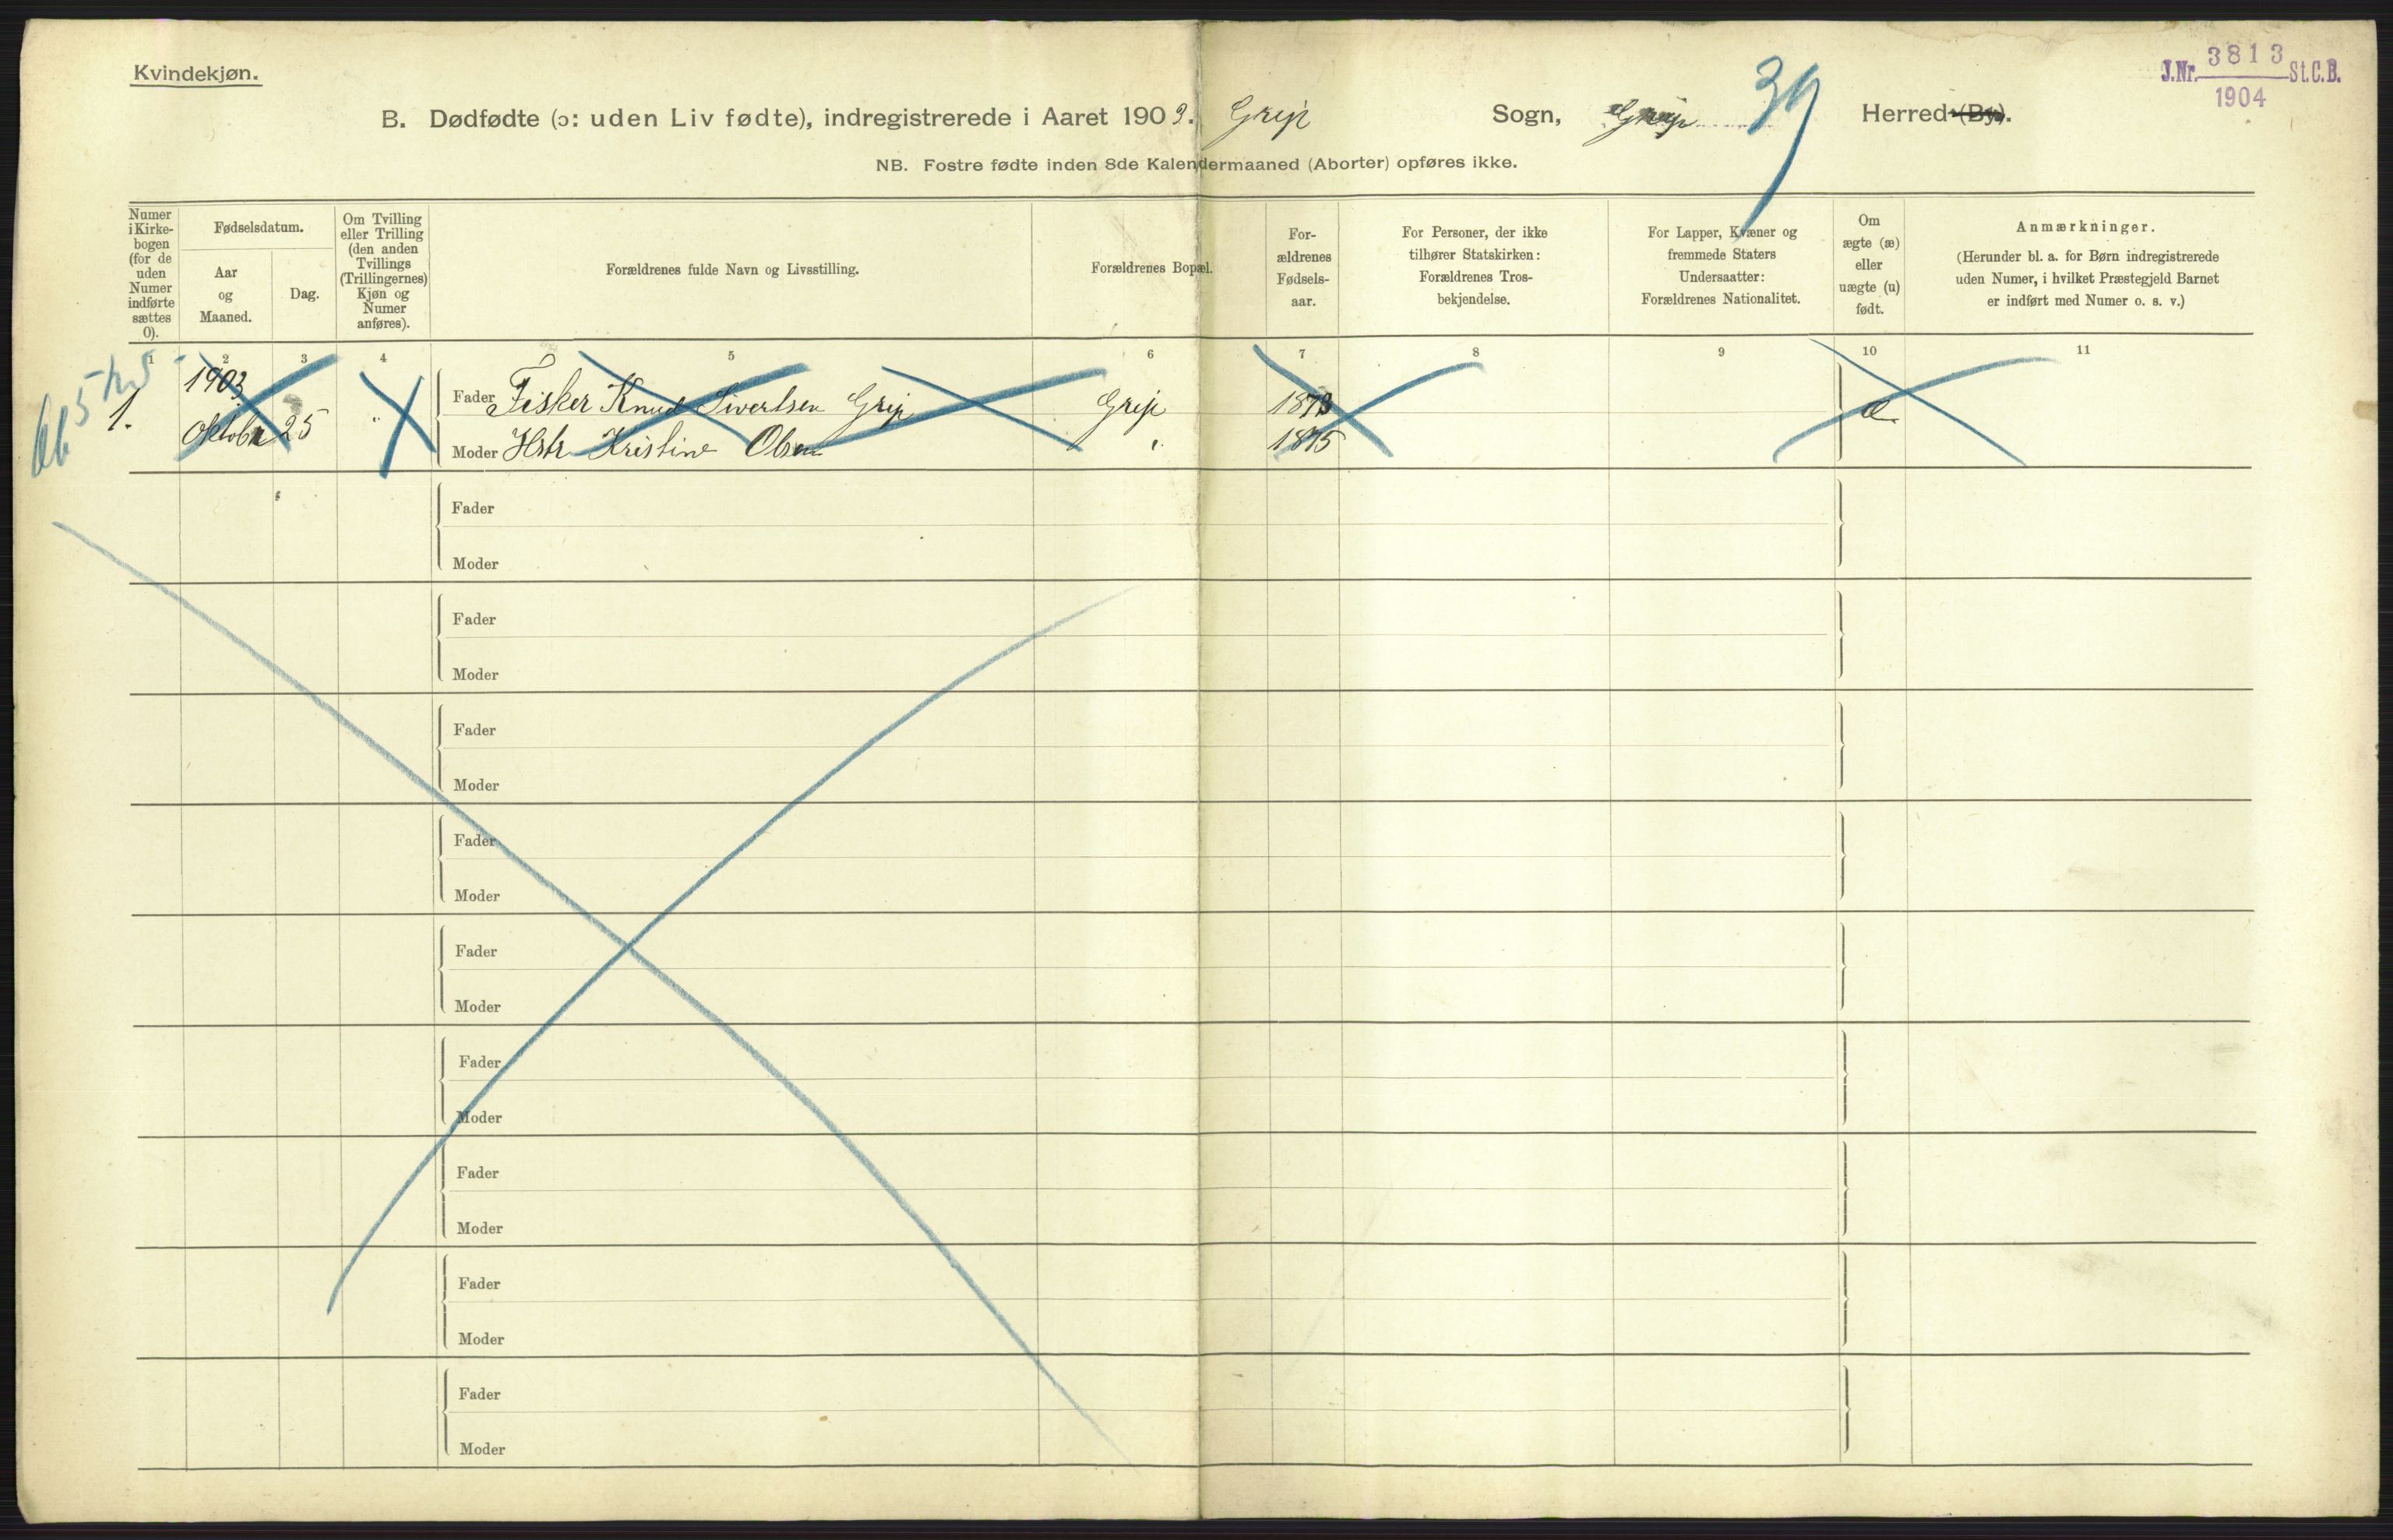 Kvindekjøn.
J.Nr. 3813 St.C.B.
1904
B. Dødfødte (ɔ: uden Liv fødte), indregistrerede i Aaret 1903. Grip Sogn, Grip Herred (By).
39
NB. Fostre fødte inden 8de Kalendermaaned (Aborter) opføres ikke.
Numer
i Kirke-
bogen
(for de
uden
Numer
indførte
sættes
0).
Fødselsdatum.
Aar
og
Maaned.
Dag.
Om Tvilling
eller Trilling
(den anden
Tvillings
(Trillingernes)
Kjøn og
Numer
anføres).
Forældrenes fulde Navn og Livsstilling.
Forældrenes Bopæl.
For-
ældrenes
Fødsels-
aar.
For Personer, der ikke
tilhører Statskirken:
Forældrenes Tros-
bekjendelse.
For Lapper, Kvæner og
fremmede Staters
Undersaatter:
Forældrenes Nationalitet.
Om
ægte (æ)
eller
uægte (u)
født.
Anmærkninger.
(Herunder bl. a. for Børn indregistrerede
uden Numer, i hvilket Præstegjeld Barnet
er indført med Numer o. s. v.)
1 2 3 4 5 6 7 8 9 10 11
1903
Fader Fisker Knud Sivertsen Grip Grip 1873
1. Oktobr 25 " æ
Moder Hstr Kristine Olsen " 1875
Fader
Moder
Fader
Moder
Fader
Moder
Fader
Moder
Fader
Moder
Fader
Moder
Fader
Moder
Fader
Moder
Fader
Moder